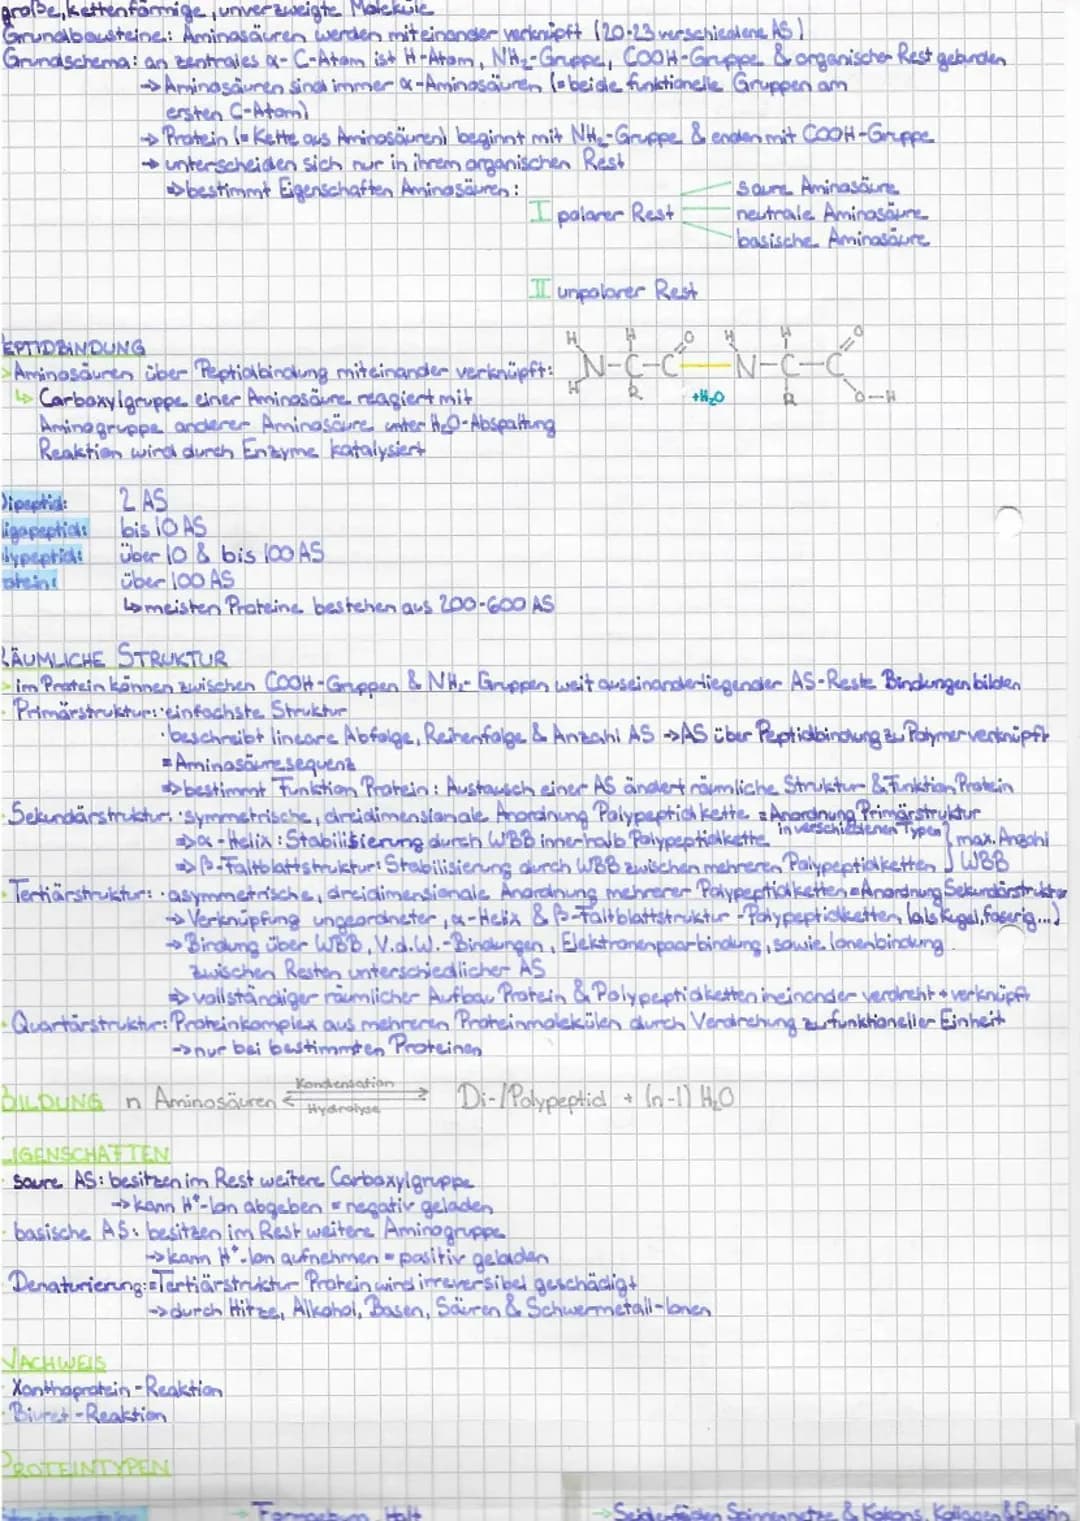 große, kettenförmige, unverzweigte Moleküle
Grundbausteine: Aminosäuren werden miteinander verknüpft (20-23 verschiedene AS)
Grundschema: an zentrales α-C-Atom ist H-Atom, NH₂-Gruppe, COOH-Gruppe & organischer Rest gebunden
→ Aminosäuren sind immer α-Aminosäuren (= beide funktionelle Gruppen am
ersten C-Atom)
→ Protein (= Kette aus Aminosäuren) beginnt mit NH₂-Gruppe & enden mit COOH-Gruppe
→ unterscheiden sich nur in ihrem organischen Rest
⇒ bestimmt Eigenschaften Aminosäuren:
saure Aminosäure
I polarer Rest neutrale Aminosäure
basische Aminosäure
II unpolarer Rest
EPTIDBINDUNG
> Aminosäuren über Peptidbindung miteinander verknüpft:
↳ Carboxylgruppe einer Aminosäure reagiert mit
Aminogruppe anderer Aminosäure unter H₂O-Abspaltung
Reaktion wird durch Enzyme katalysiert
H H O H H O
N-C-C-N-C-C
H R +H₂O R O-H
Dipeptid: 2 AS
ligopeptid: bis 10 AS
lypeptid: über 10 & bis 100 AS
otein: über 100 AS
↳ meisten Proteine bestehen aus 200-600 AS
RÄUMLICHE STRUKTUR
> im Protein können zwischen COOH-Gruppen & NH₂-Gruppen weit auseinanderliegender AS-Reste Bindungen bilden
- Primärstruktur: · einfachste Struktur
· beschreibt lineare Abfolge, Reihenfolge & Anzahl AS → AS über Peptidbindung zu Polymer verknüpft
= Aminosäuresequenz
⇒ bestimmt Funktion Protein: Austausch einer AS ändert räumliche Struktur & Funktion Protein
- Sekundärstruktur: · symmetrische, dreidimensionale Anordnung Polypeptidkette = Anordnung Primärstruktur
in verschiedenen Typen
⇒ α-Helix: Stabilisierung durch WBB innerhalb Polypeptidkette
⇒ β-Faltblattstruktur: Stabilisierung durch WBB zwischen mehreren Polypeptidketten } max. Anzahl WBB
- Tertiärstruktur: · asymmetrische, dreidimensionale Anordnung mehrerer Polypeptidketten = Anordnung Sekundärstruktur
→ Verknüpfung ungeordneter, α-Helix & β-Faltblattstruktur-Polypeptidketten (als Kugel, faserig...)
→ Bindung über WBB, V.d.W.-Bindungen, Elektronenpaarbindung, sowie Ionenbindung
zwischen Resten unterschiedlicher AS
⇒ vollständiger räumlicher Aufbau Protein & Polypeptidketten ineinander verdreht + verknüpft
- Quartärstruktur: Proteinkomplex aus mehreren Proteinmolekülen durch Verdrehung zu funktioneller Einheit
→ nur bei bestimmten Proteinen
BILDUNG n Aminosäuren Kondensation Hydrolyse Di-/Polypeptid + (n-1) H₂O
EIGENSCHAFTEN
- saure AS: besitzen im Rest weitere Carboxylgruppe
→ kann H⁺-Ion abgeben = negativ geladen
- basische AS: besitzen im Rest weitere Aminogruppe
→ kann H⁺-Ion aufnehmen = positiv geladen
Denaturierung: = Tertiärstruktur Protein wird irreversibel geschädigt
→ durch Hitze, Alkohol, Basen, Säuren & Schwermetall-Ionen
NACHWEIS
- Xanthoprotein-Reaktion
- Biuret-Reaktion
PROTEINTYPEN
→ Formgebung, Halt → Seidenfäden Spinnennetze & Kokons, Kollagen & Elastin